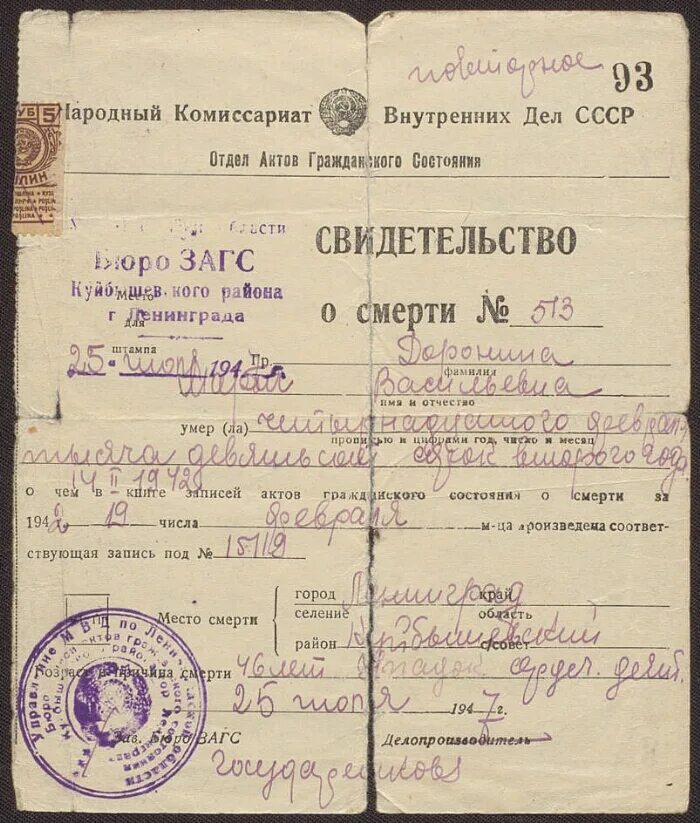 повторное 93
РУБ 5
Народный Комиссариат Внутренних Дел СССР
Отдел Актов Гражданского Состояния
области
Бюро ЗАГС
Куйбышевского района
г Ленинграда
Место
для
штампа
СВИДЕТЕЛЬСТВО
о смерти № 513
25 июля 194 г.
Гр. Доронина
фамилия
Мария Васильевна
имя и отчество
умер (ла) четырнадцатого феврал
прописью и цифрами год, число и месяц
тысяча девятьсот сорок второго года
14 II 1942
о чем в книге записей актов гражданского состояния о смерти за
1942 19 числа февраля м-ца произведена соответ-
ствующая запись под № 15119
Место смерти
город Ленинград край
селение область
район Куйбышевский с/совет
Возраст и причина смерти 46 лет Упадок сердеч. деят.
25 июля 1947 г.
Зав. Бюро ЗАГС Делопроизводитель
Управление МВД по Ленинградской области